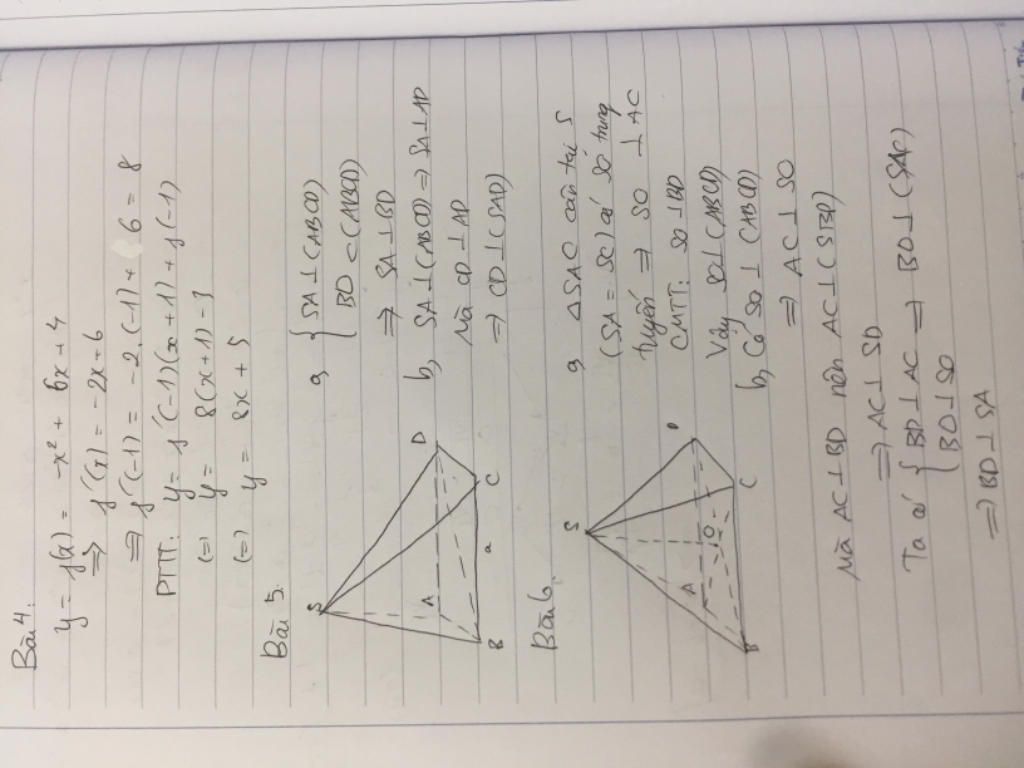 Bài 4:
y = f(x) = -x² + 6x + 4
=> f'(x) = -2x + 6
=> f'(-1) = -2.(-1) + 6 = 8
PTTT: y = f'(-1)(x+1) + f(-1)
(=) y = 8(x+1) - 3
(=) y = 8x + 5
Bài 5:
a, { SA ⊥ (ABCD)
BD ⊂ (ABCD)
=> SA ⊥ BD
b, SA ⊥ (ABCD) => SA ⊥ AD
Mà CD ⊥ AD
=> CD ⊥ (SAD)
S
A
D
B
a
C
Bài 6.
a, ΔSAC cân tại S
(SA = SC) có SO trung
tuyến => SO ⊥ AC
CMTT: SO ⊥ BD
Vậy SO ⊥ (ABCD)
b, Có SO ⊥ (ABCD)
=> AC ⊥ SO
S
A
D
O
B
C
Mà AC ⊥ BD nên AC ⊥ (SBD)
=> AC ⊥ SD
Ta có { BD ⊥ AC => BD ⊥ (SAC)
BD ⊥ SO
=> BD ⊥ SA